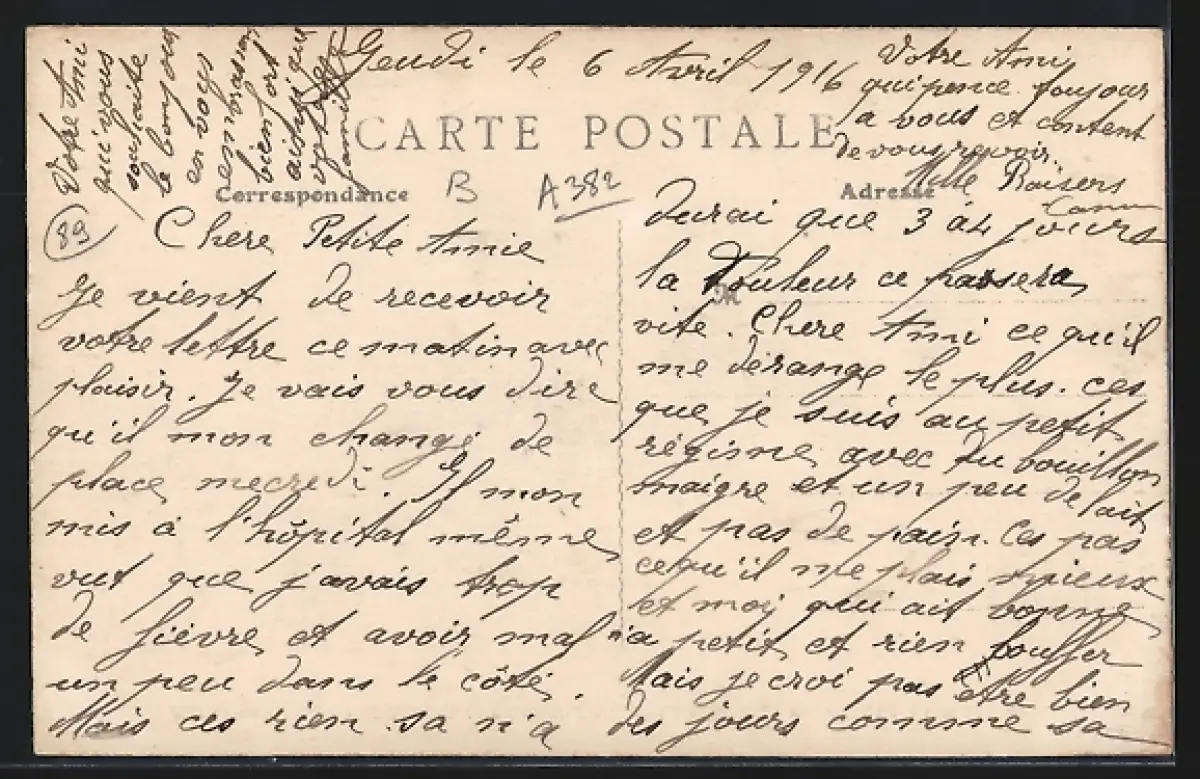 Jeudi le 6 Avril 1916
CARTE POSTALE
Correspondance
B
A 382
Adresse
89
Chere Petite Amie
Je vient de recevoir
votre lettre ce matin avec
plaisir. Je vais vous dire
qu'il mon changé de
place mecredi. Il mon
mis à l'hôpital même
vut que j'avais trop
de fièvre et avoir mal
un peu dans le côté.
Mais ces rien sa n'a
durai que 3 à 4 jours
la Douleur ce passera
vite. Chere Ami ce qu'il
me dérange le plus. ces
que je suis au petit
régime avec du bouillon
maigre et un peu de lait
et pas de pain. Ces pas
ce qu'il me plais mieux
et moy qui ait bonne
a petit et rien bouffer
Mais je croi pas être bien
des jours comme sa
Votre Ami
qui pence toujour
a vous et content
de vous revoir.
Mille Baisers
Votre Ami
qui vous
souhaite
le bonjour
en voys
embrassan
bien fort
ainsi que
votre
famille